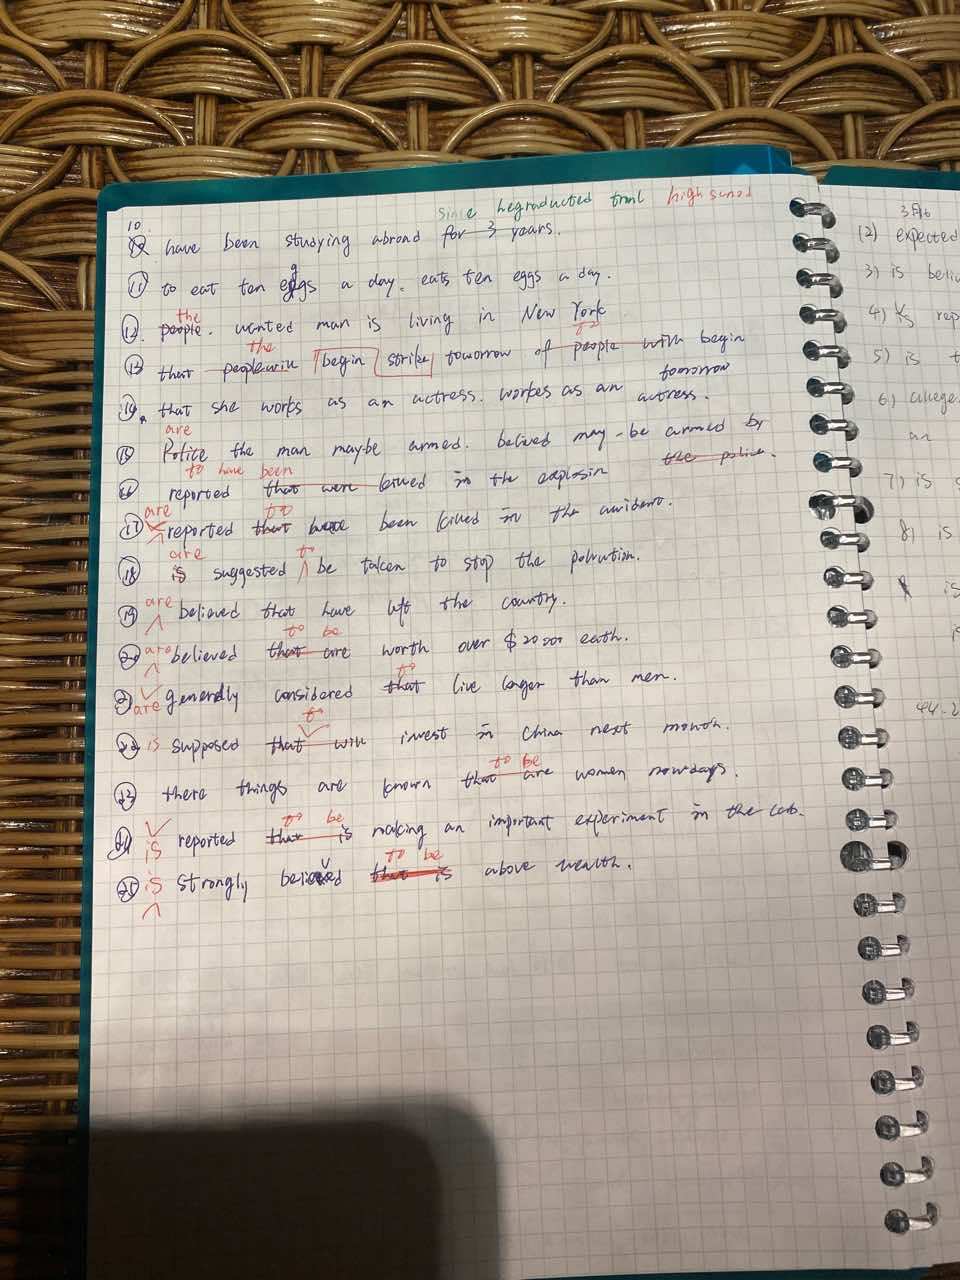 since hegraducted from high scnod
10. have been studying abroad for 3 years.
⑪ to eat ten eggs a day. eats ten eggs a day.
the
⑫ people. wanted man is living in New York
the to
⑬ that people will begin strike tomorrow of people will begin
tomorrow
⑭ that she works as an actress. workes as an actress.
are
⑮ Police the man maybe armed. belived may-be armed by the police.
to have been
⑯ reported that were killed in the explosin
are to
⑰ reported that have been killed in the accident.
are to
⑱ is suggested be taken to stop the pollution.
are
⑲ believed that have left the country.
are to be
⑳ believed that are worth over $20000 eath.
are to
㉑ generally considered that live longer than men.
to
㉒ is supposed that will invest in China next month.
to be
㉓ there things are known that are women nowdays.
to be
㉔ is reported that is making an important experiment in the lab.
to be
㉕ is strongly believed that is above wealth.
3月16
(2) expected
3) is
4)
5) is
6) allege
an
7) is
8) is
is